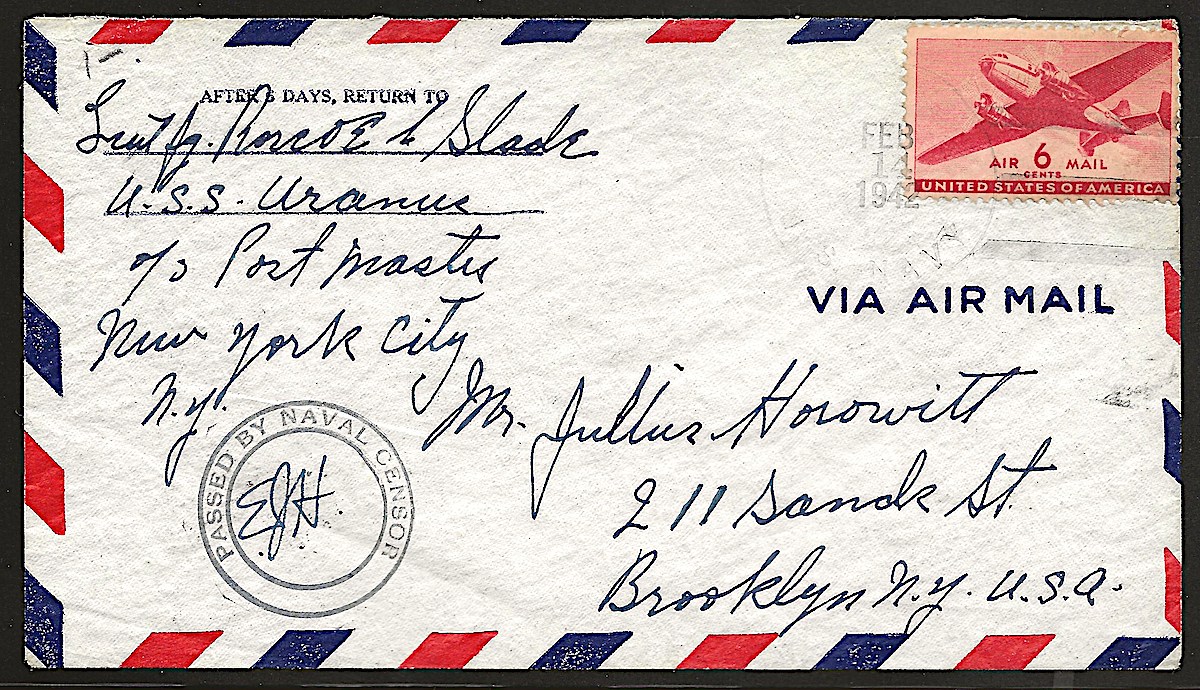 AFTER 5 DAYS, RETURN TO
Lieut jg. Roscoe L Slade
U.S.S. Uranus
c/o Post Master
New York City
N.Y.
FEB
14
1942
NAVY
AIR 6 MAIL
CENTS
UNITED STATES OF AMERICA
VIA AIR MAIL
Mr. Jullius Horowitt
211 Sands St.
Brooklyn N.Y. U.S.A.
PASSED BY NAVAL CENSOR
EJH